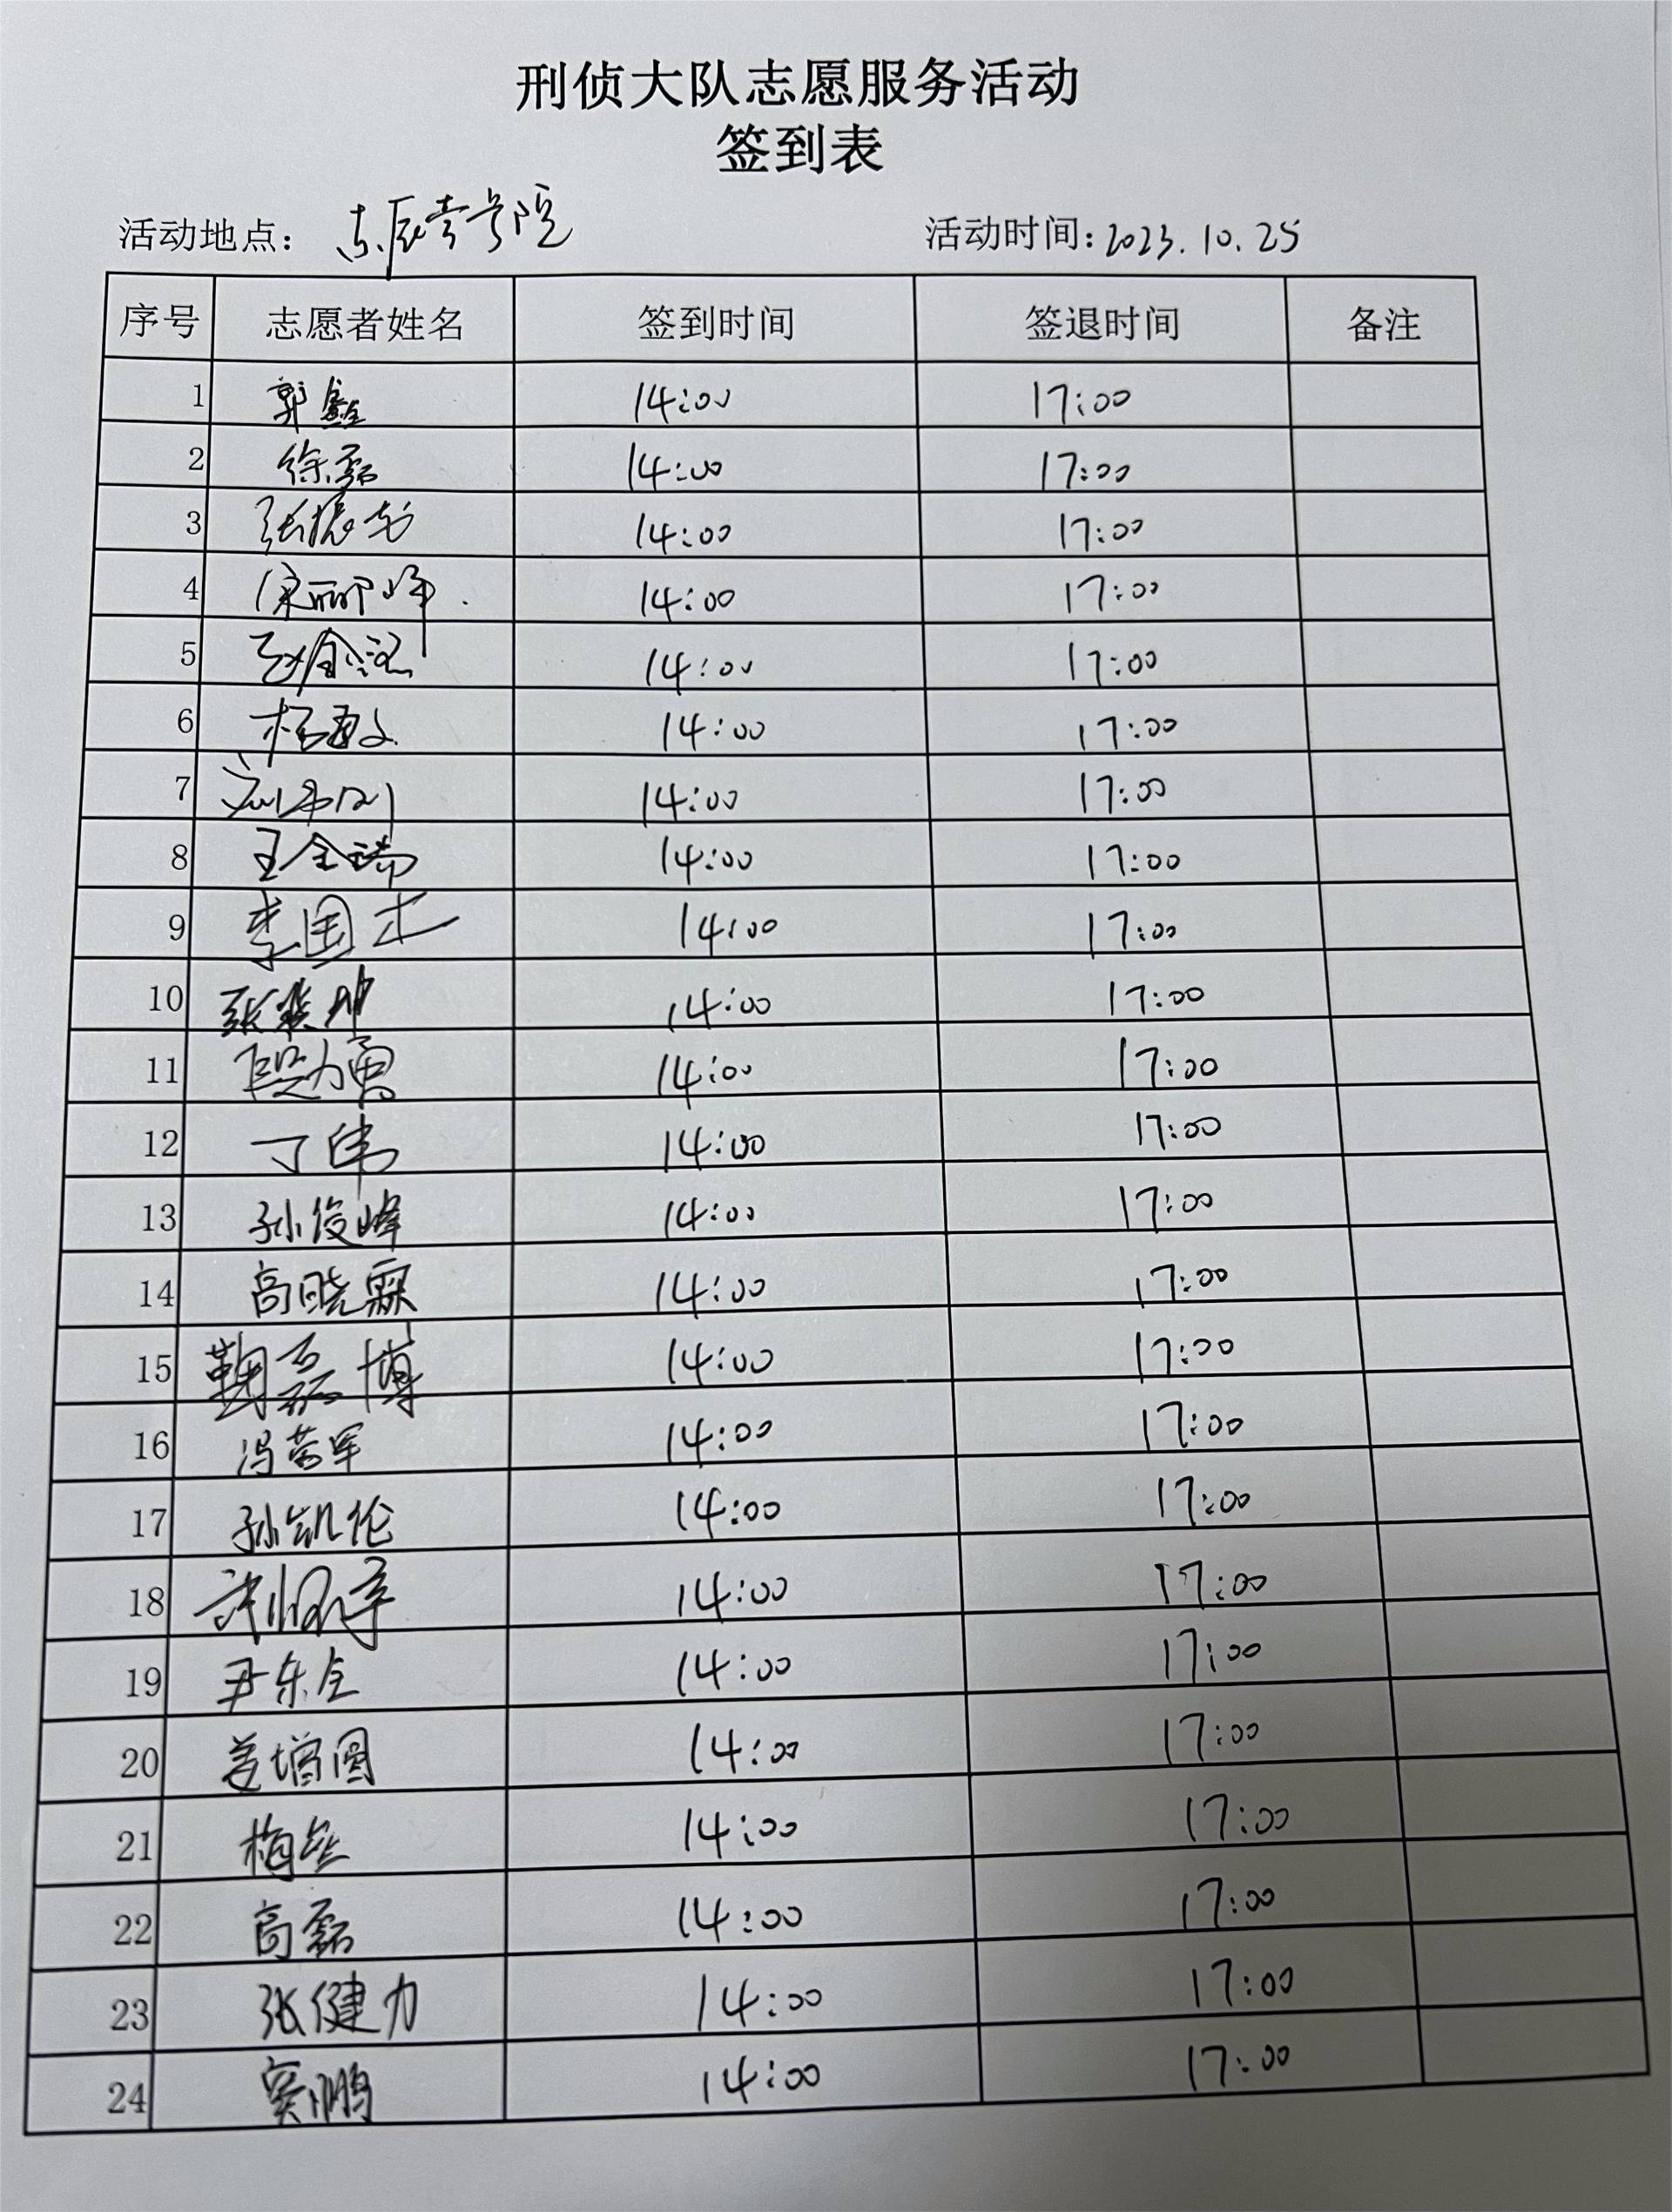 刑侦大队志愿服务活动
签到表
活动地点： 东辰壹号院 活动时间：2023.10.25
序号 志愿者姓名 签到时间 签退时间 备注
1 郭鑫 14:00 17:00
2 徐磊 14:00 17:00
3 张振 14:00 17:00
4 14:00 17:00
5 14:00 17:00
6 杨 14:00 17:00
7 14:00 17:00
8 王金瑞 14:00 17:00
9 李国 14:00 17:00
10 张 14:00 17:00
11 段力勇 14:00 17:00
12 丁伟 14:00 17:00
13 孙俊峰 14:00 17:00
14 高晓霖 14:00 17:00
15 鞠磊博 14:00 17:00
16 冯荣军 14:00 17:00
17 孙凯伦 14:00 17:00
18 许 14:00 17:00
19 尹东全 14:00 17:00
20 姜增圆 14:00 17:00
21 梅 14:00 17:00
22 高磊 14:00 17:00
23 张健力 14:00 17:00
24 窦鹏 14:00 17:00